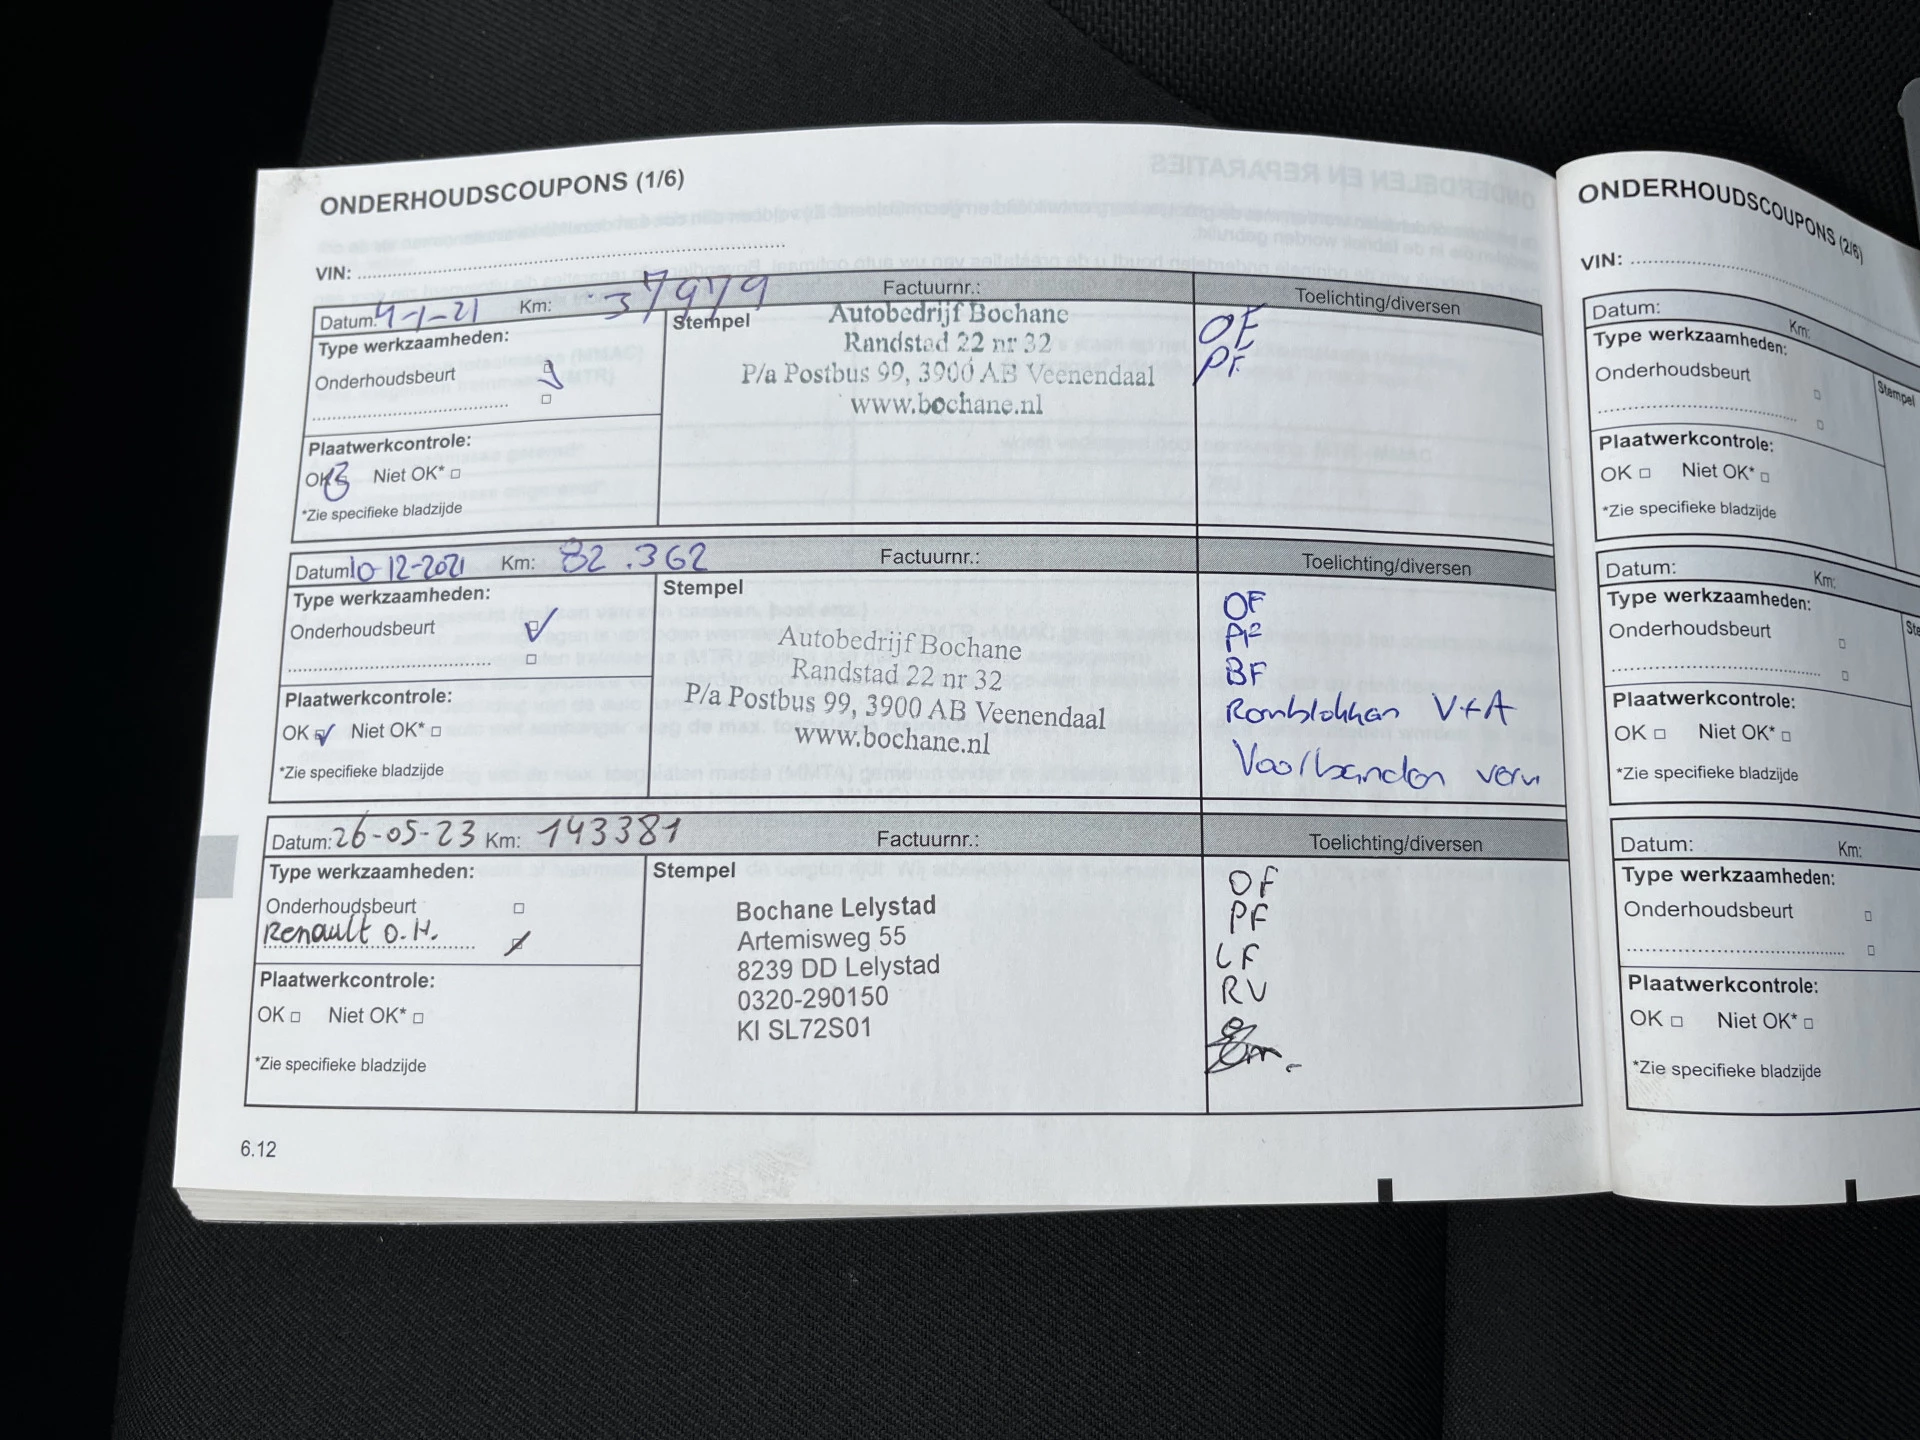 ONDERHOUDSCOUPONS (1/6)
VIN:
Datum: 4-1-21 Km: 37979 Factuurnr.: Toelichting/diversen
Type werkzaamheden:
Onderhoudsbeurt
Plaatwerkcontrole:
OK Niet OK*
*Zie specifieke bladzijde
Stempel
Autobedrijf Bochane
Randstad 22 nr 32
P/a Postbus 99, 3900 AB Veenendaal
www.bochane.nl
OF
PF
Datum 10-12-2021 Km: 82.362 Factuurnr.: Toelichting/diversen
Type werkzaamheden:
Onderhoudsbeurt
Plaatwerkcontrole:
OK Niet OK*
*Zie specifieke bladzijde
Stempel
Autobedrijf Bochane
Randstad 22 nr 32
P/a Postbus 99, 3900 AB Veenendaal
www.bochane.nl
OF
PF
BF
Remblokken V+A
Voorbanden verv
Datum: 26-05-23 Km: 143381 Factuurnr.: Toelichting/diversen
Type werkzaamheden:
Onderhoudsbeurt
Renault O.H.
Plaatwerkcontrole:
OK Niet OK*
*Zie specifieke bladzijde
Stempel
Bochane Lelystad
Artemisweg 55
8239 DD Lelystad
0320-290150
KI SL72S01
OF
PF
LF
RV
6.12
ONDERHOUDSCOUPONS (2/6)
VIN:
Datum: Km:
Type werkzaamheden:
Onderhoudsbeurt
Stempel
Plaatwerkcontrole:
OK Niet OK*
*Zie specifieke bladzijde
Datum: Km:
Type werkzaamheden:
Onderhoudsbeurt
Ste
Plaatwerkcontrole:
OK Niet OK*
*Zie specifieke bladzijde
Datum: Km:
Type werkzaamheden:
Onderhoudsbeurt
Plaatwerkcontrole:
OK Niet OK*
*Zie specifieke bladzijde